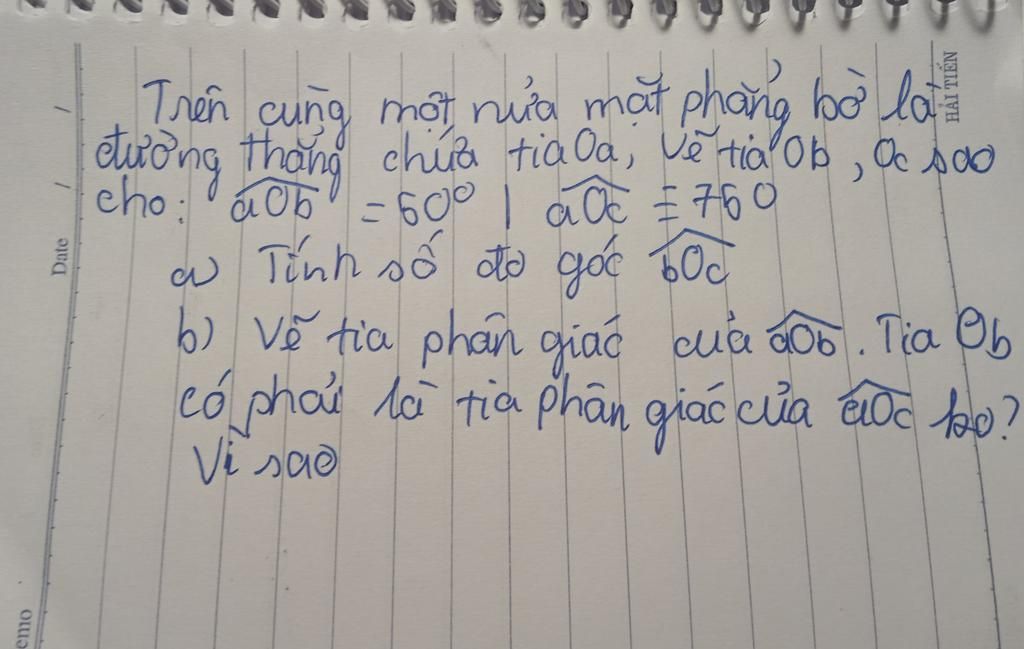 HẢI TIẾN
Trên cùng một nửa mặt phẳng bờ là
đường thẳng chứa tia Oa, vẽ tia Ob, Oc sao
cho: aOb = 60° | aOc = 750
a) Tính số đo góc bOc
b) Vẽ tia phân giác của aOb. Tia Ob
có phải là tia phân giác của aOc ko?
Vì sao
Date / /
emo